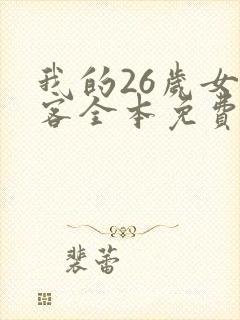 我的26歲女
客全本免費
裴蕾